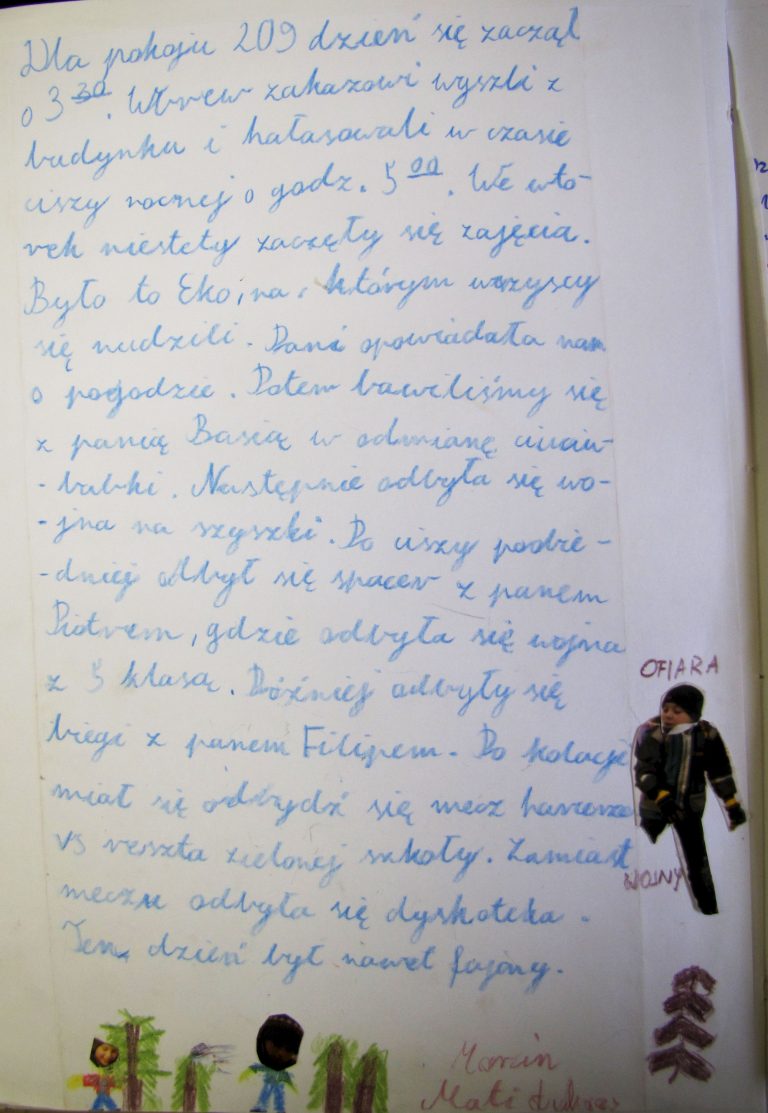 Dla pokoju 209 dzień się zaczął
o 3 30. Wbrew zakazowi wyszli z
budynku i hałasowali w czasie
ciszy nocnej o godz. 5 00. We wto-
rek niestety zaczęły się zajęcia.
Było to Eko, na którym wszyscy
się nudzili. Pani opowiadała nam
o pogodzie. Potem bawiliśmy się
z panią Basią w odmianę ciuciu-
-babki. Następnie odbyła się wo-
-jna na szyszki. Po ciszy podie-
-dniej odbył się spacer z panem
Piotrem, gdzie odbyła się wojna
z 5 klasą. Później odbyły się
biegi z panem Filipem. Po kolacji
miał się odbydź się mecz harcerze
vs reszta zielonej szkoły. Zamiast
meczu odbyła się dyskoteka.
Ten dzień był nawet fajny.
OFIARA
WOJNY
Marcin
Mati Łukasz